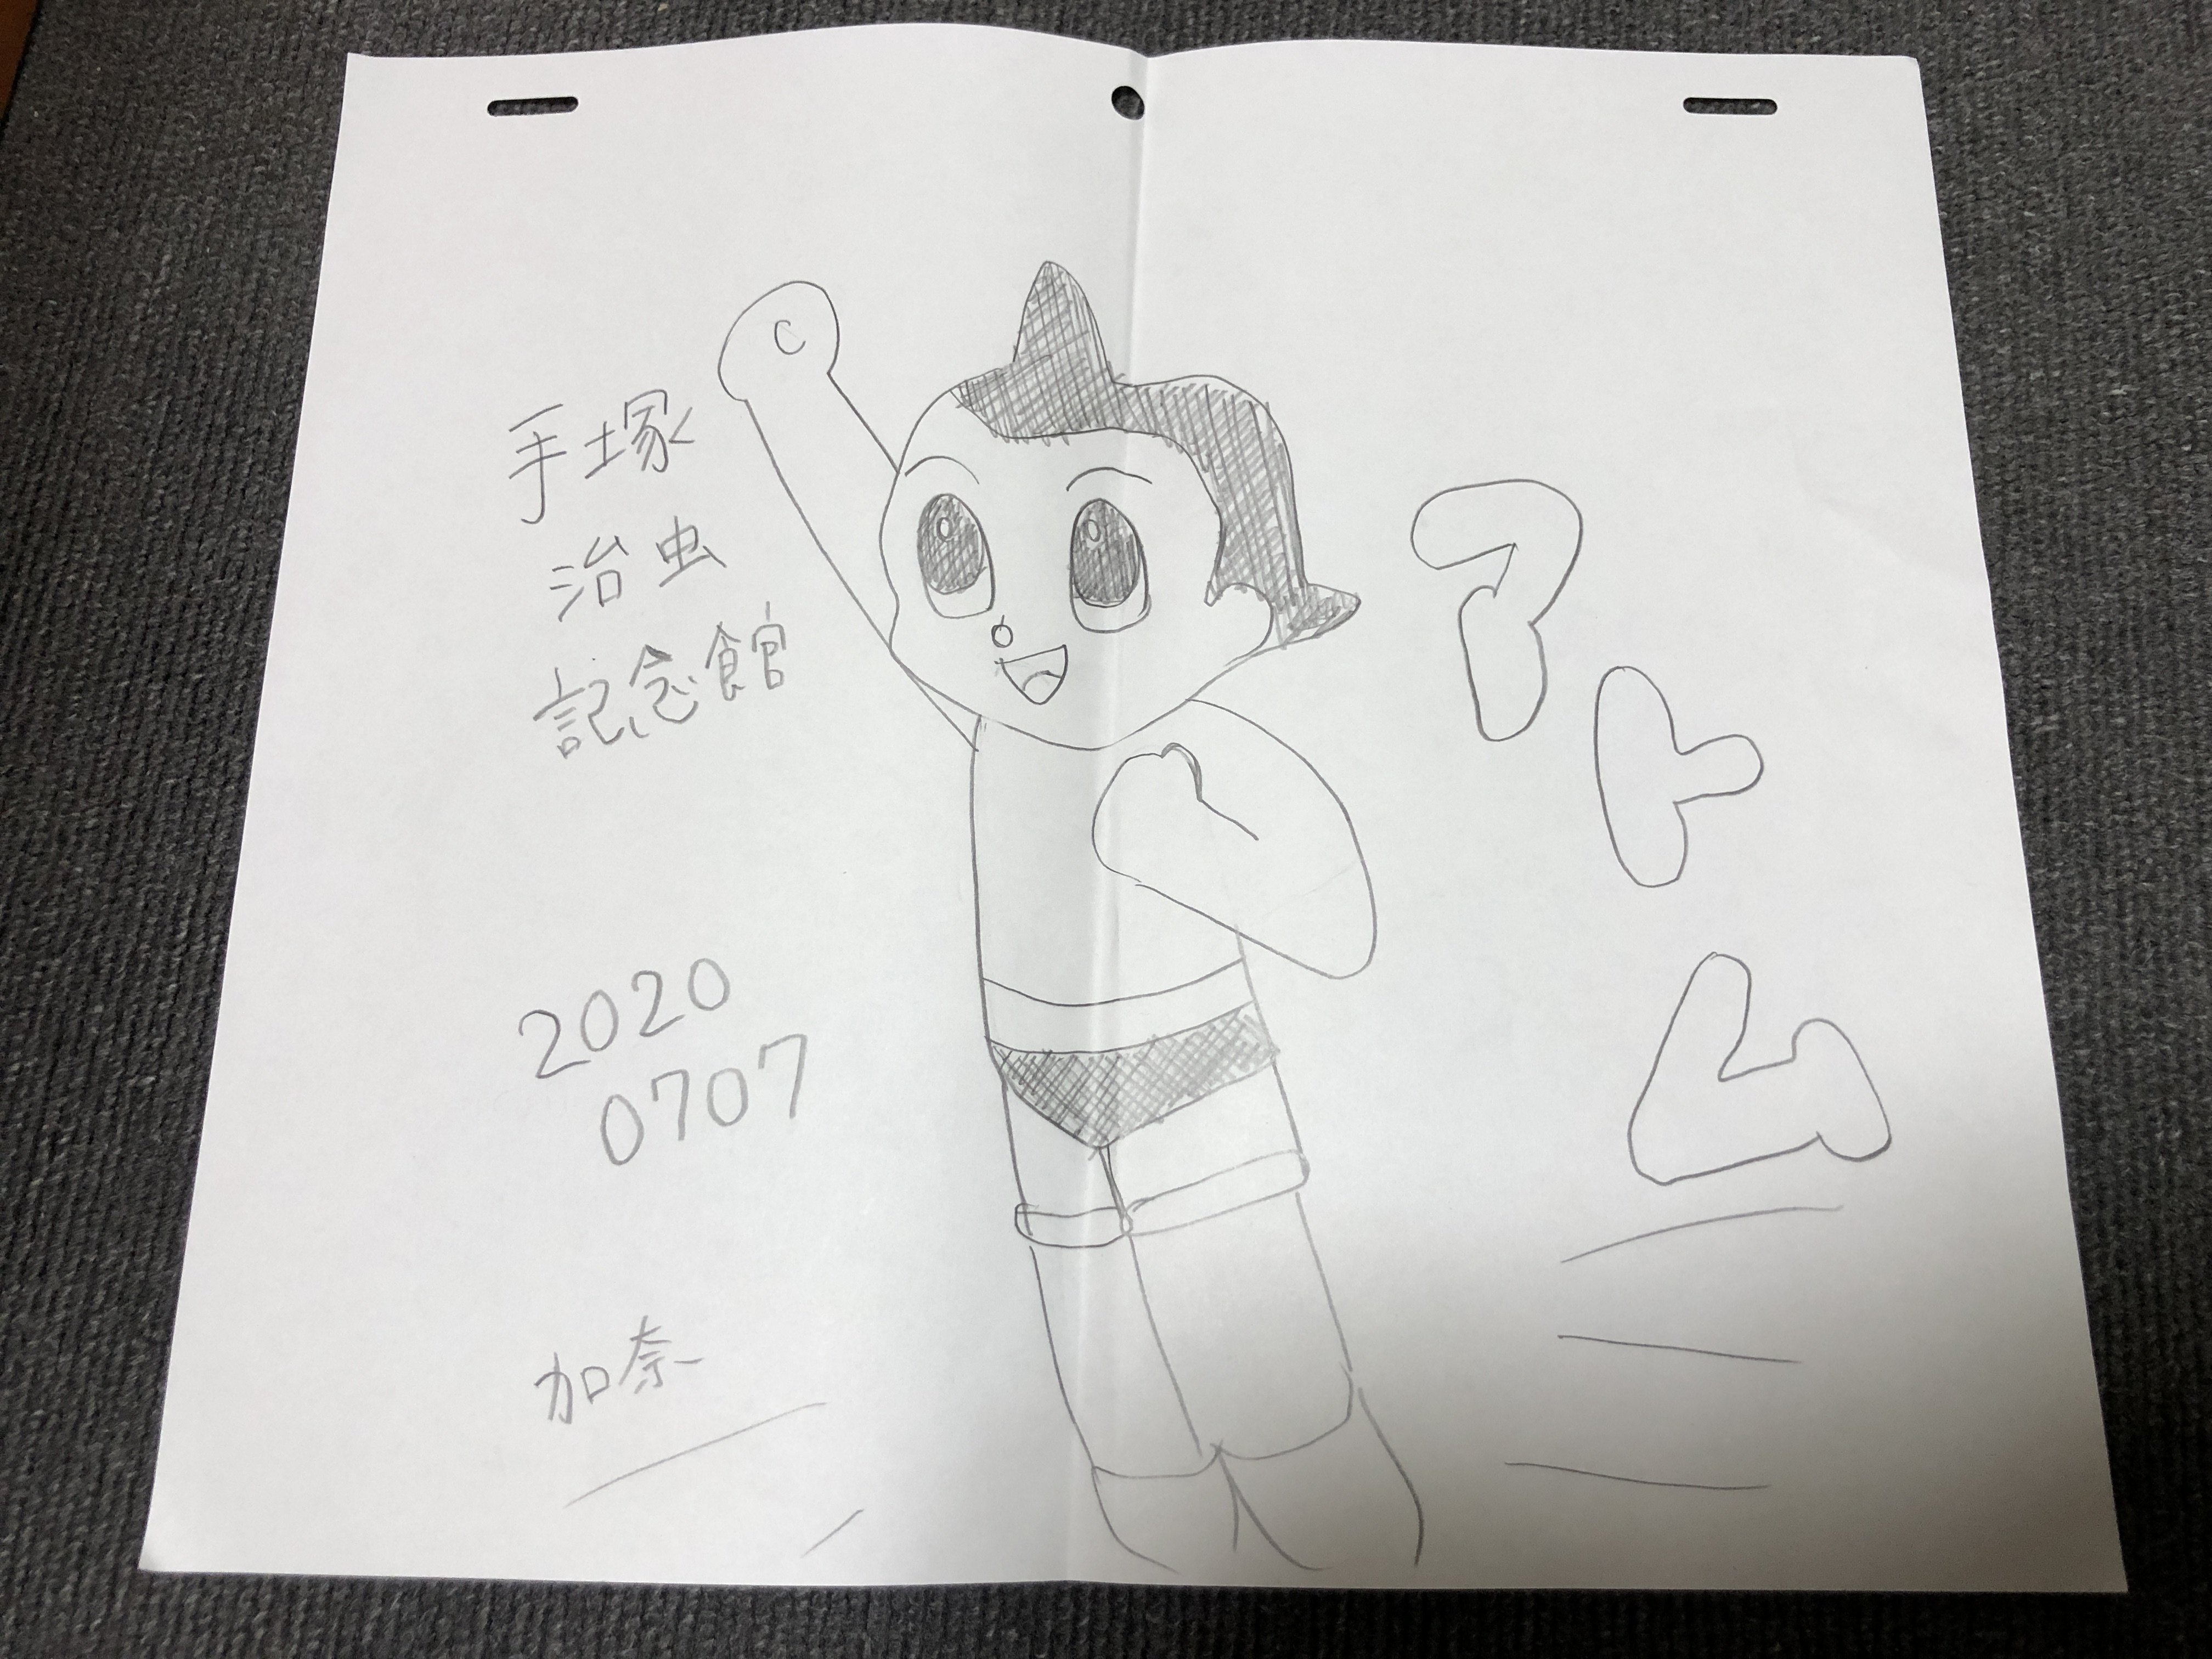 手塚
治虫
記念館
2020
0707
加奈
アトム